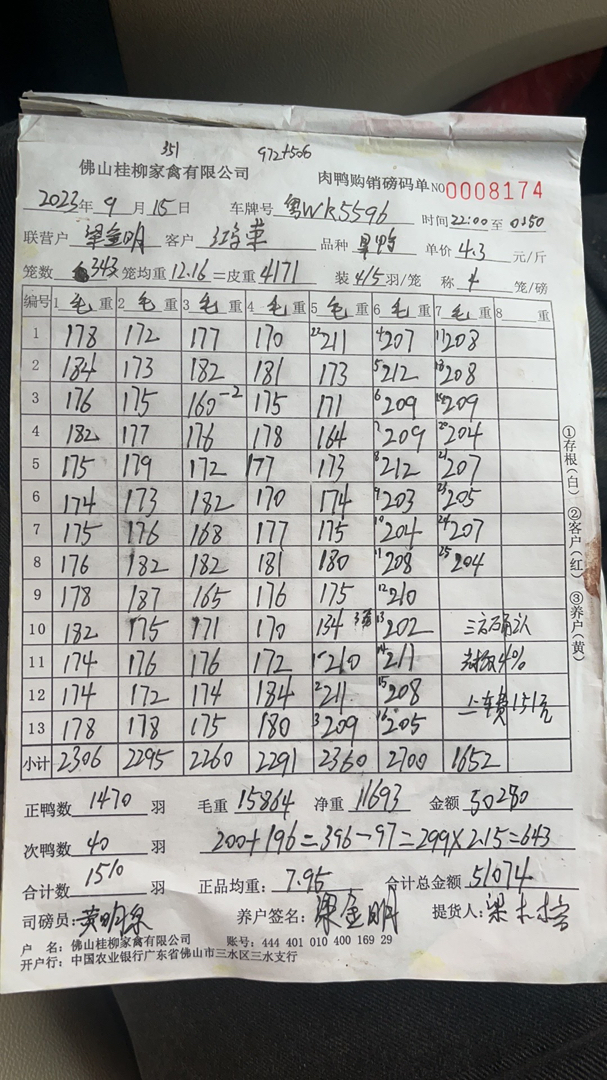 351 972+506
佛山桂柳家禽有限公司 肉鸭购销磅码单 NO 0008174
2023年 9月 15日 车牌号 粤WK5596 时间 22:00 至 0350
联营户 梁金明 客户 品种 单价 4.3 元/斤
笼数 343 笼均重 12.16 =皮重 4171 装 4/5 羽/笼 称 4 笼/磅
编号 1 毛 重 2 毛 重 3 毛 重 4 毛 重 5 毛 重 6 毛 重 7 毛 重 8 重
1 178 172 177 170 22 211 4 207 17 208
2 184 173 182 181 173 5 212 18 208
3 176 175 160-2 175 171 6 209 19 209
4 182 177 176 178 164 7 209 20 204
5 175 179 172 177 173 8 212 21 207
6 174 173 182 170 174 9 203 23 205
7 175 176 168 177 175 10 204 24 207
8 176 182 182 181 180 11 208 25 204
9 178 187 165 176 175 12 210
10 182 175 171 170 134 13 202 三方确认
11 174 176 176 172 1 210 14 211 4%
12 174 172 174 184 2 211 15 208 上车费151元
13 178 178 175 180 3 209 16 205
小计 2306 2295 2260 2291 2360 2700 1652
①存根(白) ②客户(红) ③养户(黄)
正鸭数 1470 羽 毛重 15864 净重 11693 金额 50280
次鸭数 40 羽 200+196=396-97=299×2.15=643
合计数 1510 羽 正品均重: 7.95 合计总金额 51074
司磅员: 养户签名: 梁金明 提货人: 梁
户 名: 佛山桂柳家禽有限公司 账号: 444 401 010 400 169 29
开户行: 中国农业银行广东省佛山市三水区三水支行